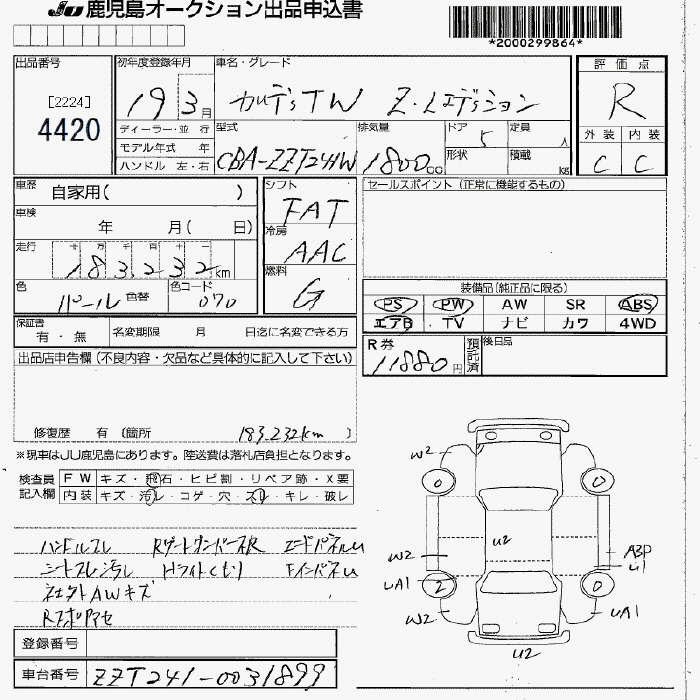 JU 鹿児島オークション出品申込書
*2000299864*
出品番号
[2224]
4420
初年度登録年月
19 3月
車名・グレード
カルディナTW Z・Lエディション
評価点
R
ディーラー・並 行
モデル年式 年
ハンドル 左・右
型式
CBA-ZZT241W
排気量
1800cc
ドア 5
定員 人
形状
積載 kg
外装 内装
C C
車歴 自家用( )
車検 年 月( 日)
走行 十 万 千 百 十
183,232km
色 パール 色替
色コード 070
シフト
FAT
冷房
AAC
燃料
G
セールスポイント (正常に機能するもの)
装備品(純正品に限る)
PS PW AW SR ABS
エアB TV ナビ カワ 4WD
保証書 有・無
名変期限 月 日迄に名変できる方
R券 11880円
預託済
後日品
出品店申告欄(不良内容・欠品など具体的に記入して下さい)
修復歴 有 〔箇所 183,232km 〕
※現車はJU鹿児島にあります。陸送費は落札店負担となります。
検査員記入欄
FW キズ・飛石・ヒビ割・リペア跡・X要
内装 キズ・汚レ・コゲ・穴・スレ・キレ・破レ
ハンドルスレ
シートスレ汚レ Hライトくもり
AWキズ
W2
U2
W2
UA1
W2
2
A3P
U1
UA1
U2
登録番号
車台番号 ZZT241-0031899